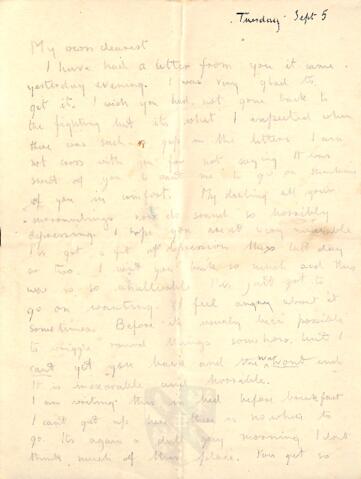 Tuesday Sept 5
My own dearest
I have had a letter from you it came
yesterday evening. I was very glad to
get it. I wish you had not gone back to
the fighting but it's what I expected when
there was such a gap in the letters. I am
not cross with you for not saying. It was
sweet of you to want me to go on thinking
of you in comfort. My darling all your
surroundings do sound so horribly
depressing. I hope you aren't very miserable
I've got a fit of depression these last days
so too. I want you back so much and this
war is so I've just got to
go on wanting. I feel angry about it
sometimes. Before it's usually been possible
to wriggle round things somehow, but I
can't get you back and the war won't end
It is inexorable and horrible.
I am writing this in bed before breakfast
I can't get up here there is nowhere to
go. It's again a dull grey morning I don't
think much of this place. You get so